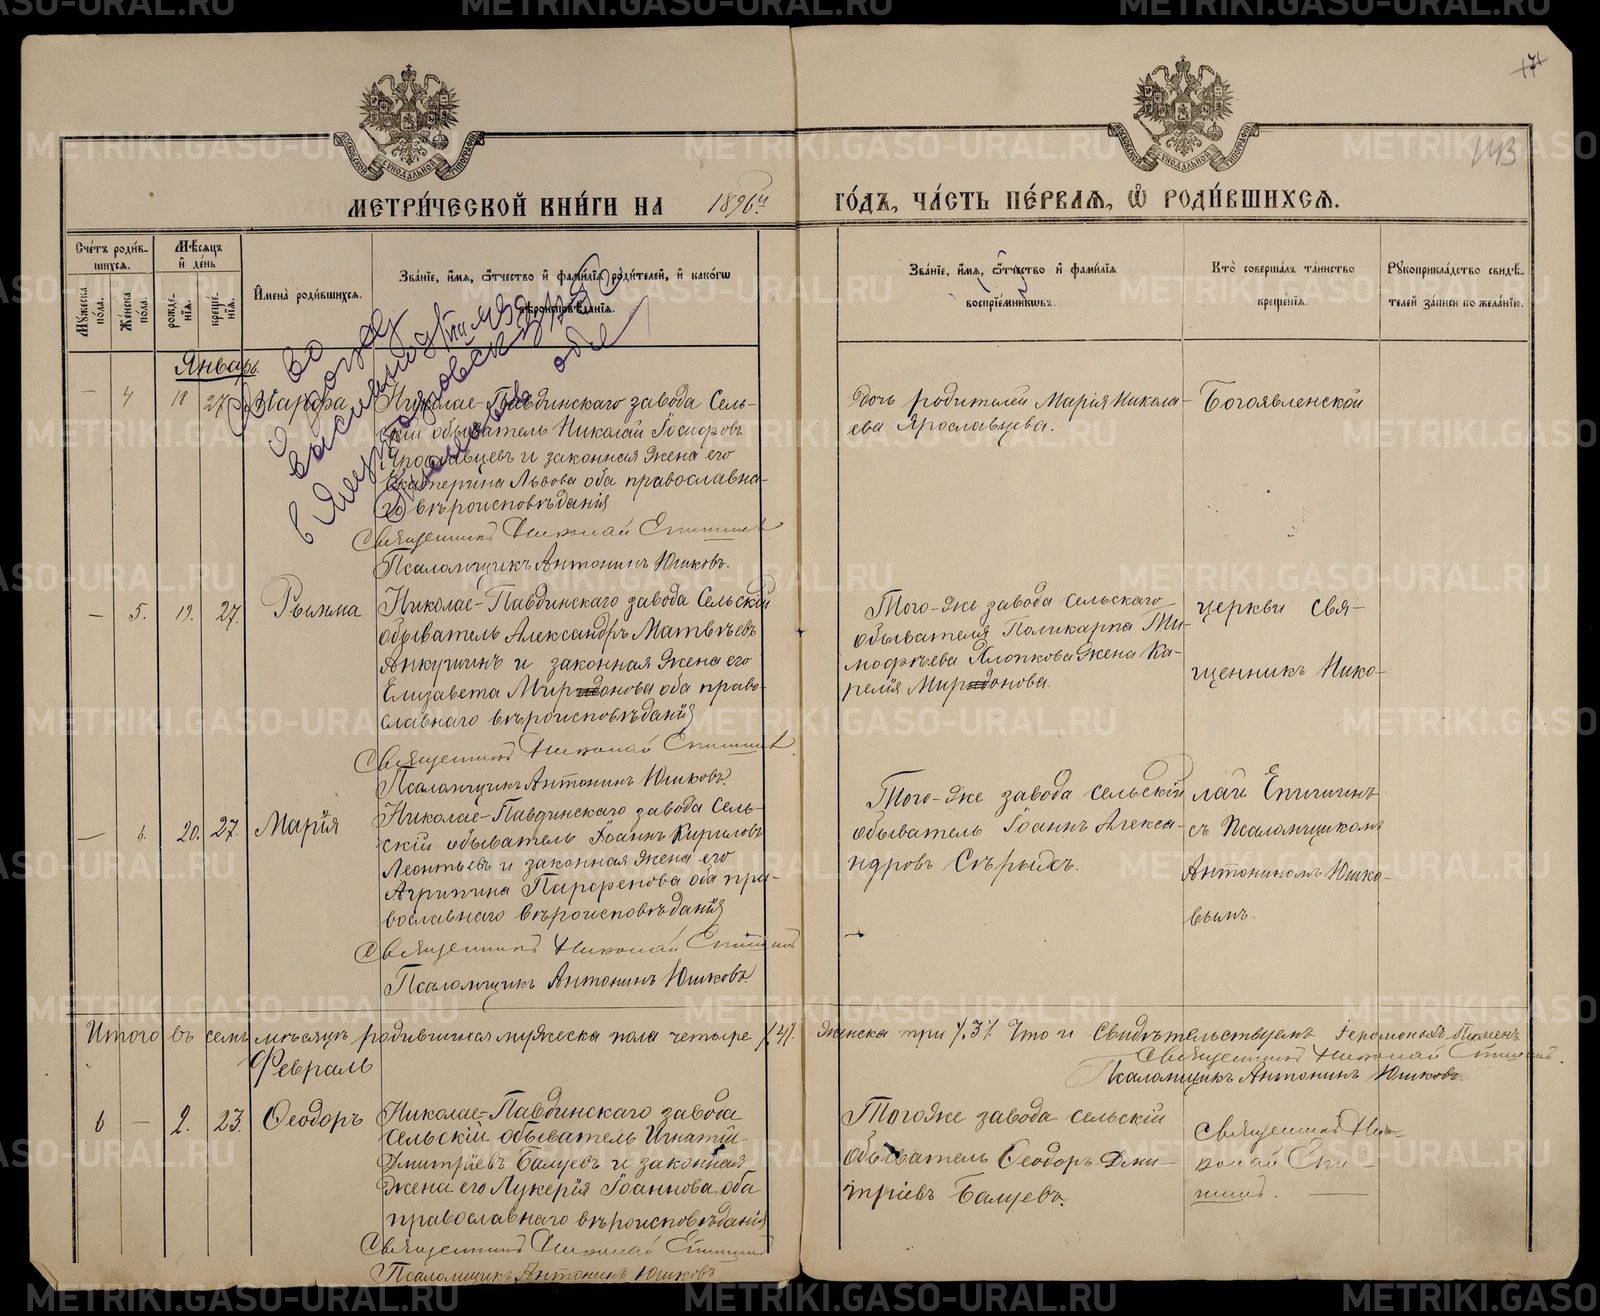 МЕТРИ́ЧЕСКОЙ КНИ́ГИ НА 1896й ГО́ДЪ, ЧА́СТЬ ПЕ́РВАЯ, Ѡ҆ РОДИ́ВШИХСЯ.
143
Сче́тъ роди́в-
шихся.
Мꙋжеска по́ла.
Же́нска по́ла.
Мѣ́сяцъ и҆ де́нь
рожде-
нїя.
креще́-
нїя.
И҆мена̀ роди́вшихся.
Зва́нїе, и҆́мя, ѻ҆́тчество и҆ фами́лїя роди́телей, и҆ како́гѡ
вѣроисповѣ́данїя.
Зва́нїе, и҆́мя, ѻ҆́тчество и҆ фами́лїя
воспрїе́мникѡвъ.
Кто̀ соверша́лъ та́инство
креще́нїя.
Рꙋкоприкла́дство свидѣ́-
телей за́писи по жела́нїю.
Январь.
— 4 18 27
Николае-Павдинскаго завода Сель-
скій обыватель Николай Іосифовъ
Ярославцевъ и законная жена его
Екатерина Львова оба православна-
го вѣроисповѣданія
Священникъ Николай Епишинъ
Псаломщикъ Антонинъ Юшковъ.
Дочь родителей Марія Никола-
ева Ярославцева.
Богоявленской
— 5. 19. 27. Римма
Николае-Павдинскаго завода Сельскій
обыватель Александръ Матвѣевъ
Анкушинъ и законная жена его
Елизавета Миронова оба право-
славнаго вѣроисповѣданія
Священникъ Николай Епишинъ
Псаломщикъ Антонинъ Юшковъ.
Того-же завода сельскаго
обывателя Поликарпа Ти-
мофѣева Хлопкова жена Ка-
релія Миронова.
церкви Свя-
щенникъ Нико-
— 6. 20. 27. Марія
Николае-Павдинскаго завода Сель-
скій обыватель Іоаннъ Кириловъ
Леонтьевъ и законная жена его
Агрипина Парфенова оба пра-
вославнаго вѣроисповѣданія
Священникъ Николай Епишинъ
Псаломщикъ Антонинъ Юшковъ.
Того-же завода сельскій
обыватель Іоаннъ Алекса-
ндровъ Сѣрыхъ.
лай Епишинъ
съ Псаломщикомъ
Антониномъ Юшко-
вымъ.
Итого въ семъ мѣсяцѣ родившихся мужеска пола четыре /.4/. женска три /.3/. Что и Свидѣтельствуемъ Іеромонахъ Пименъ
Священникъ Николай Епишинъ.
Псаломщикъ Антонинъ Юшковъ.
Февраль
6 — 2. 23. Ѳеодоръ
Николае-Павдинскаго завода
сельскій обыватель Игнатій
Дмитріевъ Балуевъ и законная
жена его Лукерія Іоаннова оба
православнаго вѣроисповѣданія
Священникъ Николай Епишинъ
Псаломщикъ Антонинъ Юшковъ
Тогоже завода сельскій
обыватель Ѳеодоръ Дми-
тріевъ Балуевъ.
Священникъ Ни-
колай Епи-
шинъ.
METRIKI.GASO-URAL.RU